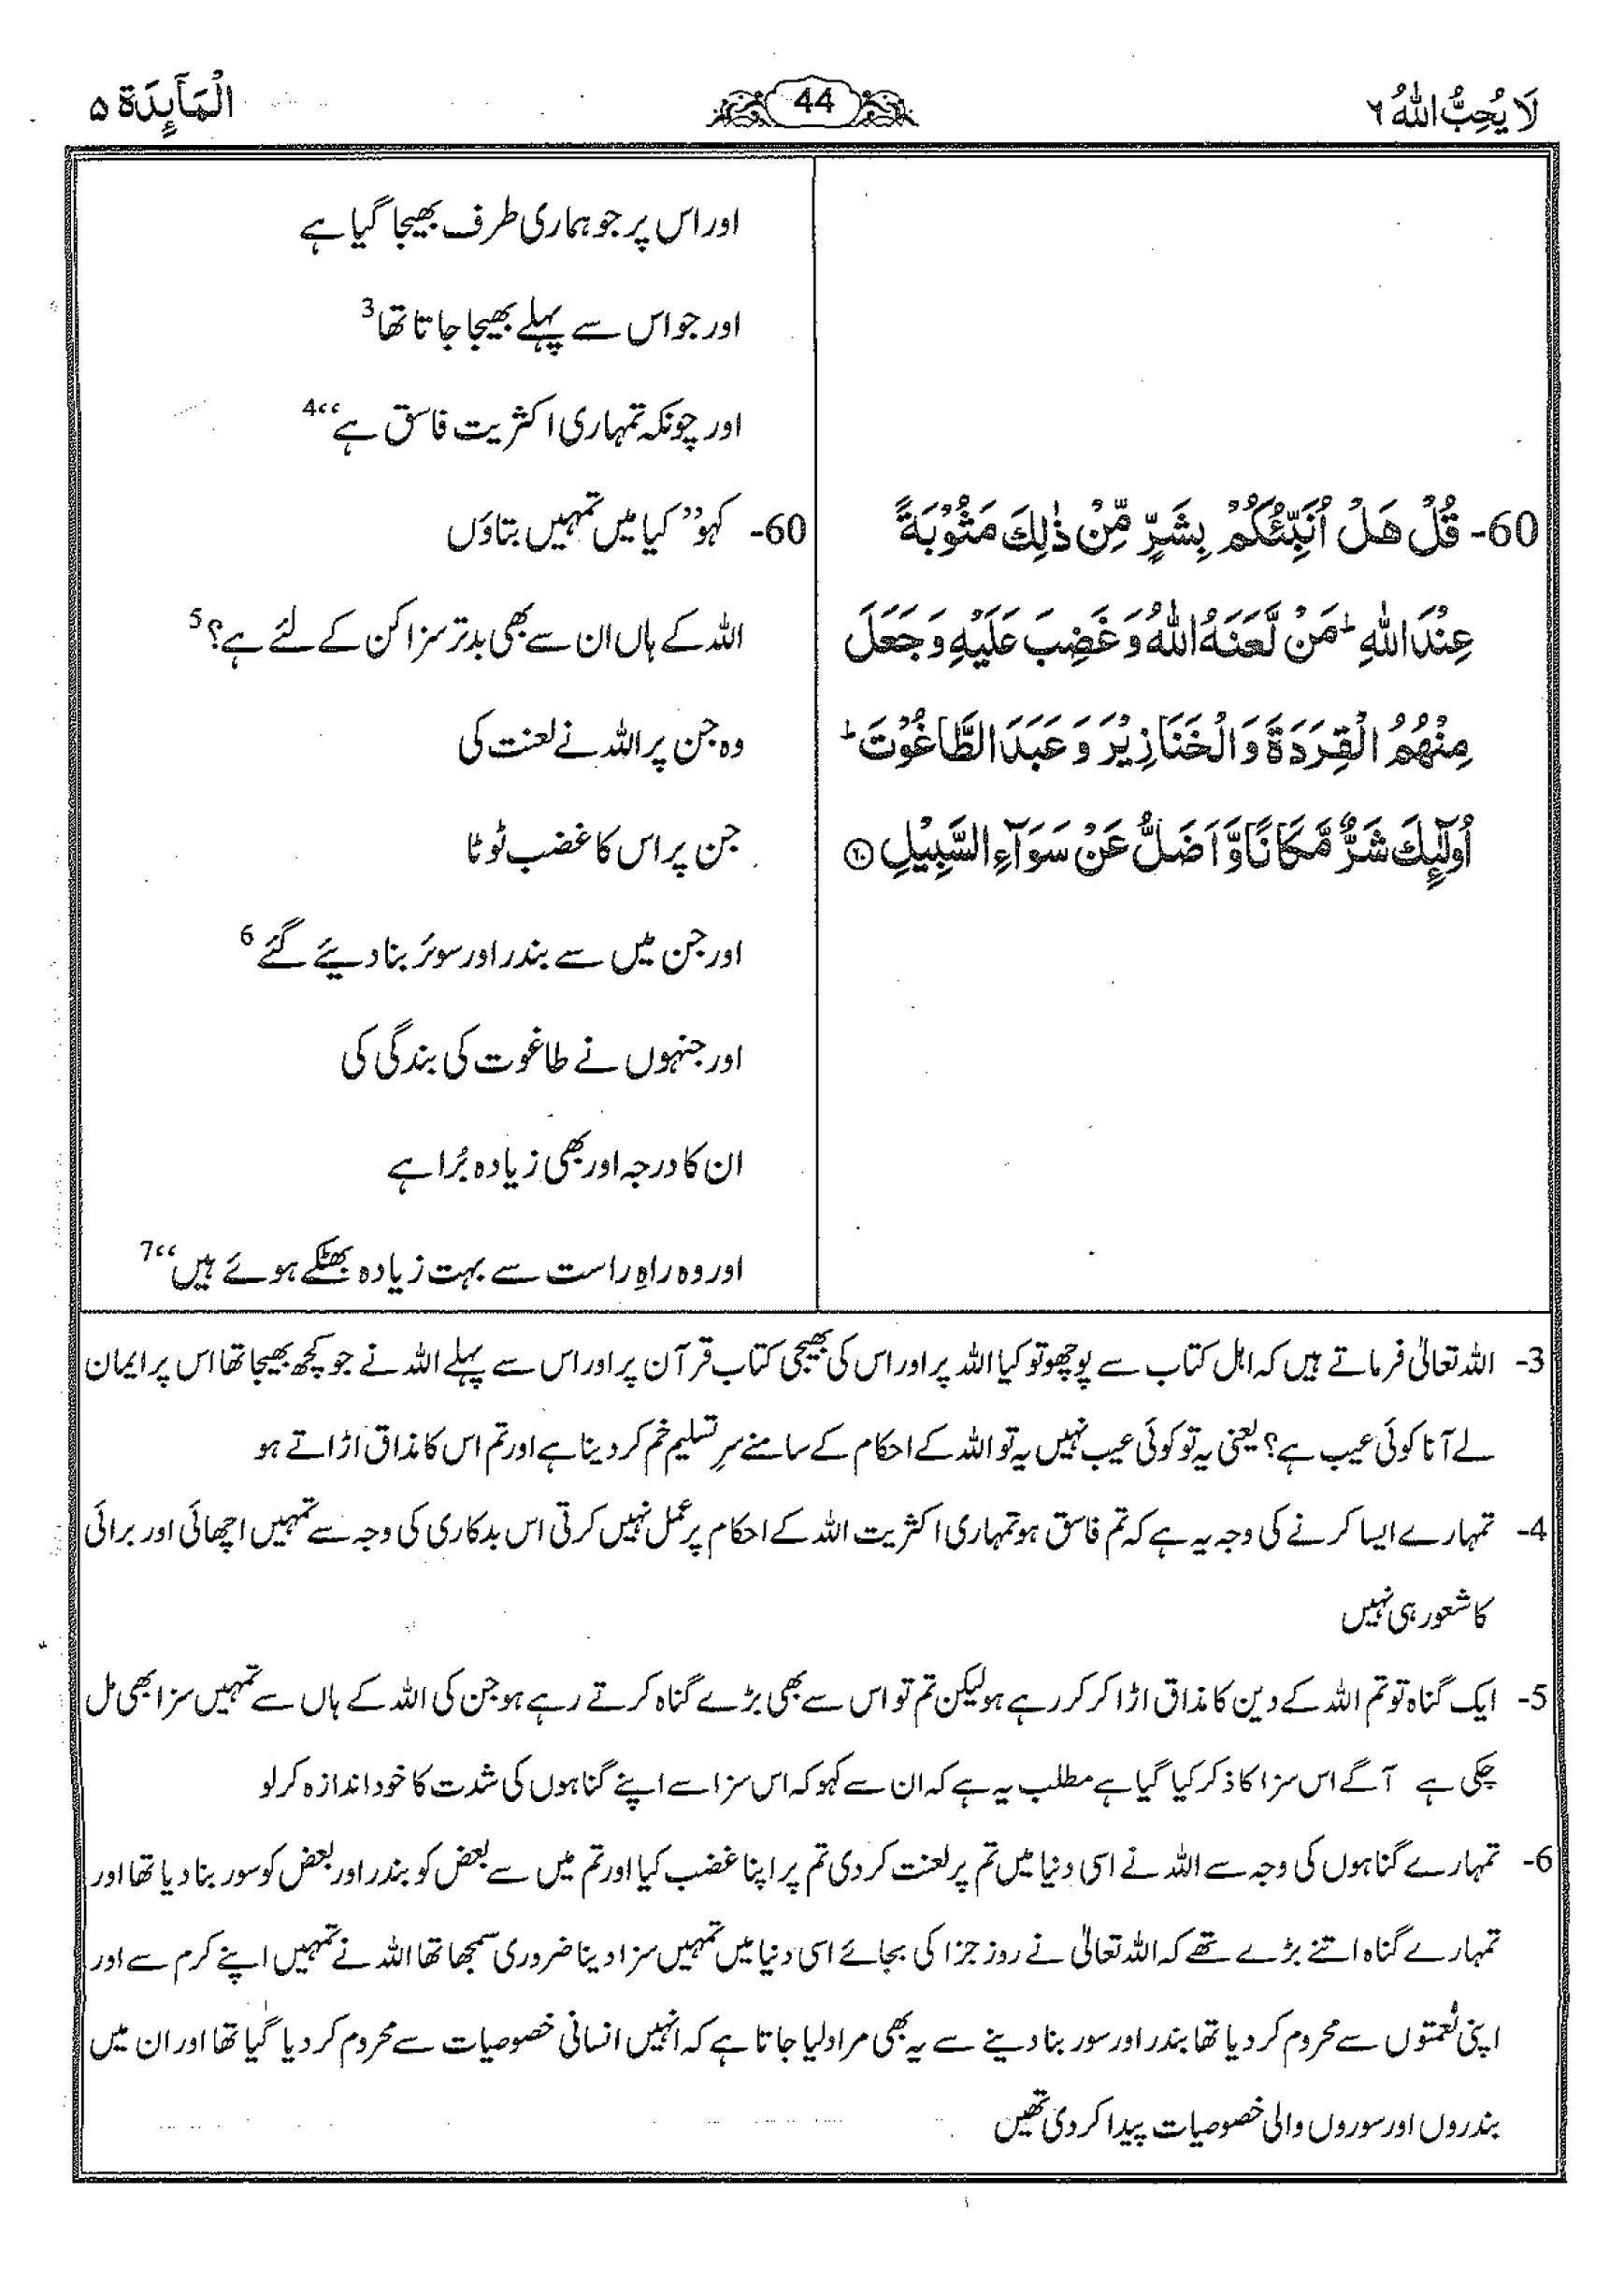 لَا يُحِبُّ اللّٰهُ ٦
44
الْمَآئِدَة ۵
اور اس پر جو ہماری طرف بھیجا گیا ہے
اور جو اس سے پہلے بھیجا جاتا تھا3
اور چونکہ تمہاری اکثریت فاسق ہے“4
60- قُلْ هَلْ اُنَبِّئُكُمْ بِشَرٍّ مِّنْ ذٰلِكَ مَثُوْبَةً
عِنْدَ اللّٰهِ ؕ مَنْ لَّعَنَهُ اللّٰهُ وَ غَضِبَ عَلَيْهِ وَ جَعَلَ
مِنْهُمُ الْقِرَدَةَ وَ الْخَنَازِيْرَ وَ عَبَدَ الطَّاغُوْتَ ؕ
اُولٰٓئِكَ شَرٌّ مَّكَانًا وَّ اَضَلُّ عَنْ سَوَآءِ السَّبِيْلِ ۶۰
60- کہو ”کیا میں تمہیں بتاؤں
اللہ کے ہاں ان سے بھی بدتر سزا کن کے لئے ہے؟5
وہ جن پر اللہ نے لعنت کی
جن پر اس کا غضب ٹوٹا
اور جن میں سے بندر اور سوئر بنا دیئے گئے6
اور جنہوں نے طاغوت کی بندگی کی
ان کا درجہ اور بھی زیادہ بُرا ہے
اور وہ راہِ راست سے بہت زیادہ بھٹکے ہوئے ہیں“7
3- اللہ تعالیٰ فرماتے ہیں کہ اہل کتاب سے پوچھو تو کیا اللہ پر اور اس کی بھیجی کتاب قرآن پر اور اس سے پہلے اللہ نے جو کچھ بھیجا تھا اس پر ایمان
لے آنا کوئی عیب ہے؟ یعنی یہ تو کوئی عیب نہیں یہ تو اللہ کے احکام کے سامنے سرِ تسلیم خم کر دینا ہے اور تم اس کا مذاق اڑاتے ہو
4- تمہارے ایسا کرنے کی وجہ یہ ہے کہ تم فاسق ہو تمہاری اکثریت اللہ کے احکام پر عمل نہیں کرتی اس بدکاری کی وجہ سے تمہیں اچھائی اور برائی
کا شعور ہی نہیں
5- ایک گناہ تو تم اللہ کے دین کا مذاق اڑا کر کر رہے ہو لیکن تم تو اس سے بھی بڑے گناہ کرتے رہے ہو جن کی اللہ کے ہاں سے تمہیں سزا بھی مل
چکی ہے آگے اس سزا کا ذکر کیا گیا ہے مطلب یہ ہے کہ ان سے کہو کہ اس سزا سے اپنے گناہوں کی شدت کا خود اندازہ کر لو
6- تمہارے گناہوں کی وجہ سے اللہ نے اسی دنیا میں تم پر لعنت کر دی تم پر اپنا غضب کیا اور تم میں سے بعض کو بندر اور بعض کو سور بنا دیا تھا اور
تمہارے گناہ اتنے بڑے تھے کہ اللہ تعالیٰ نے روز جزا کی بجائے اسی دنیا میں تمہیں سزا دینا ضروری سمجھا تھا اللہ نے تمہیں اپنے کرم سے اور
اپنی نعمتوں سے محروم کر دیا تھا بندر اور سور بنا دینے سے یہ بھی مراد لیا جاتا ہے کہ انہیں انسانی خصوصیات سے محروم کر دیا گیا تھا اور ان میں
بندروں اور سوروں والی خصوصیات پیدا کر دی تھیں